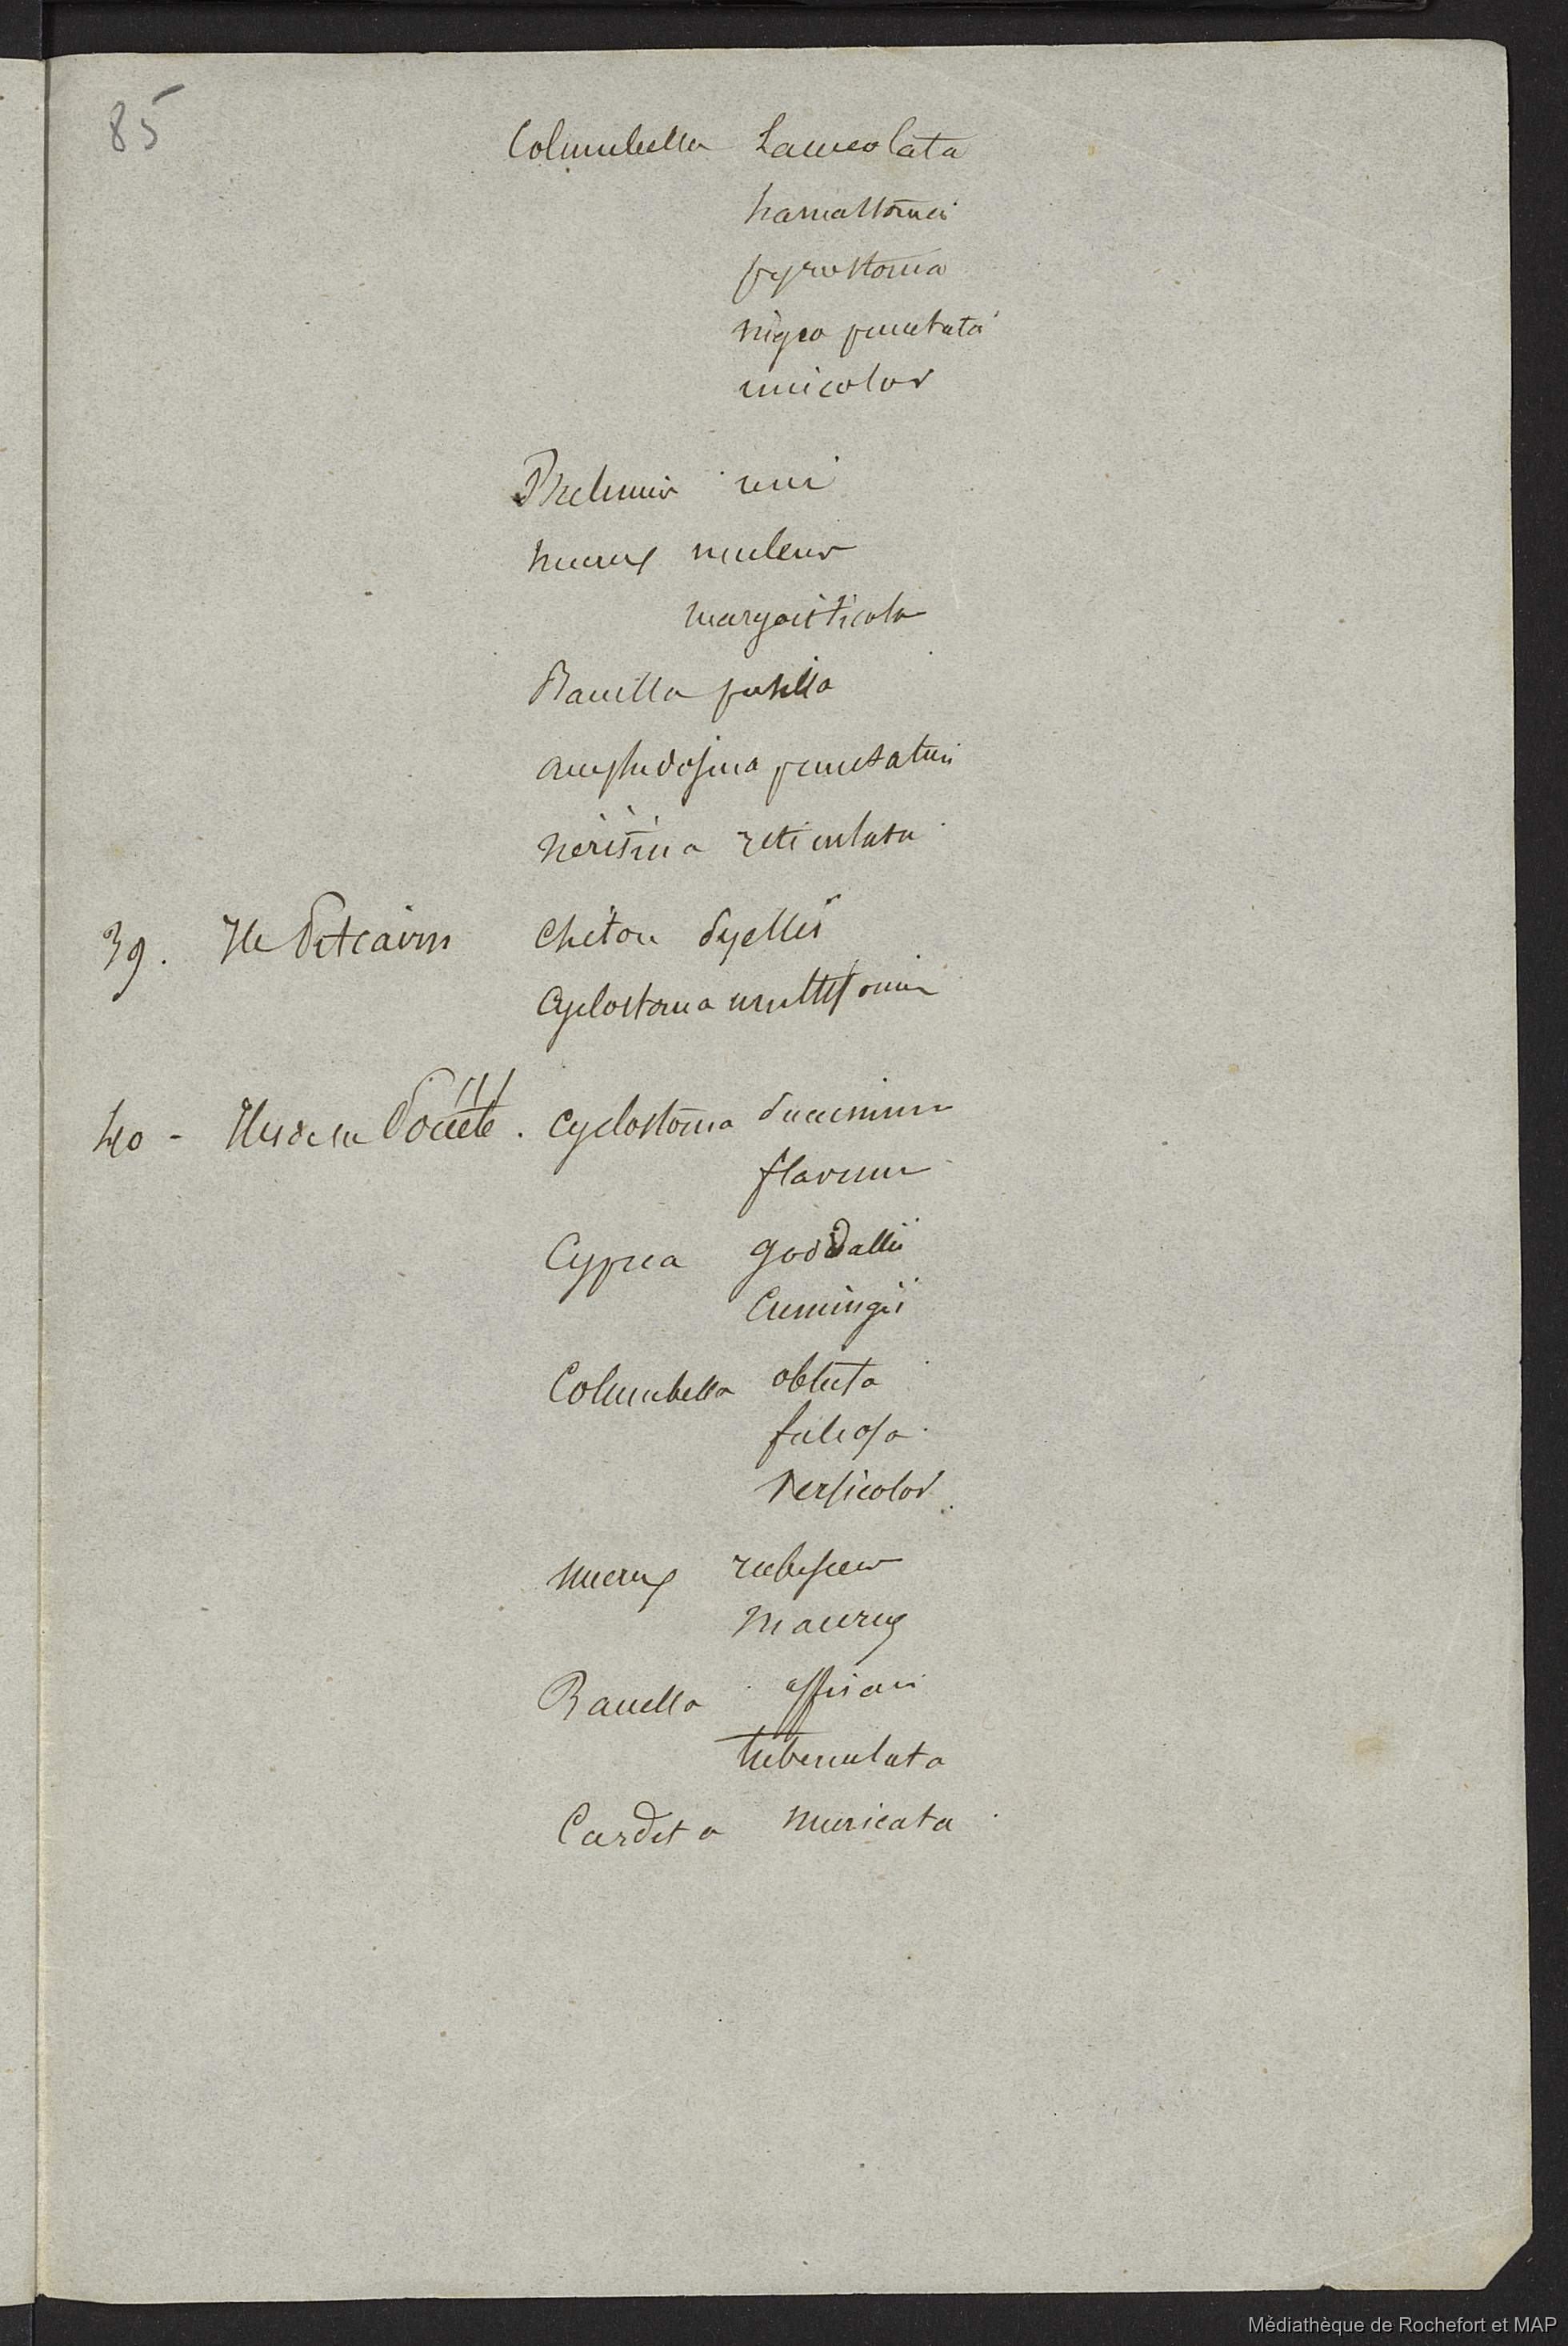 85
Columbella Lanceolata
hamastoma
pyrostoma
nigro punctata
unicolor
Bulimus nux
murex nuleus
margariticola
Ranella pusilla
amphidesma punctatum
néritina reticulata
39. Ile Pitcairn Chiton Syellis
Cyclostoma multiforme
40 - Iles de la Société. Cyclostoma succinium
flavum
Cyprea goodallii
Cumingii
Columbella obtusa
fulcosa
versicolor
murex rubescens
maurus
Ranella affinis
tuberculata
Cardita muricata
Médiathèque de Rochefort et MAP